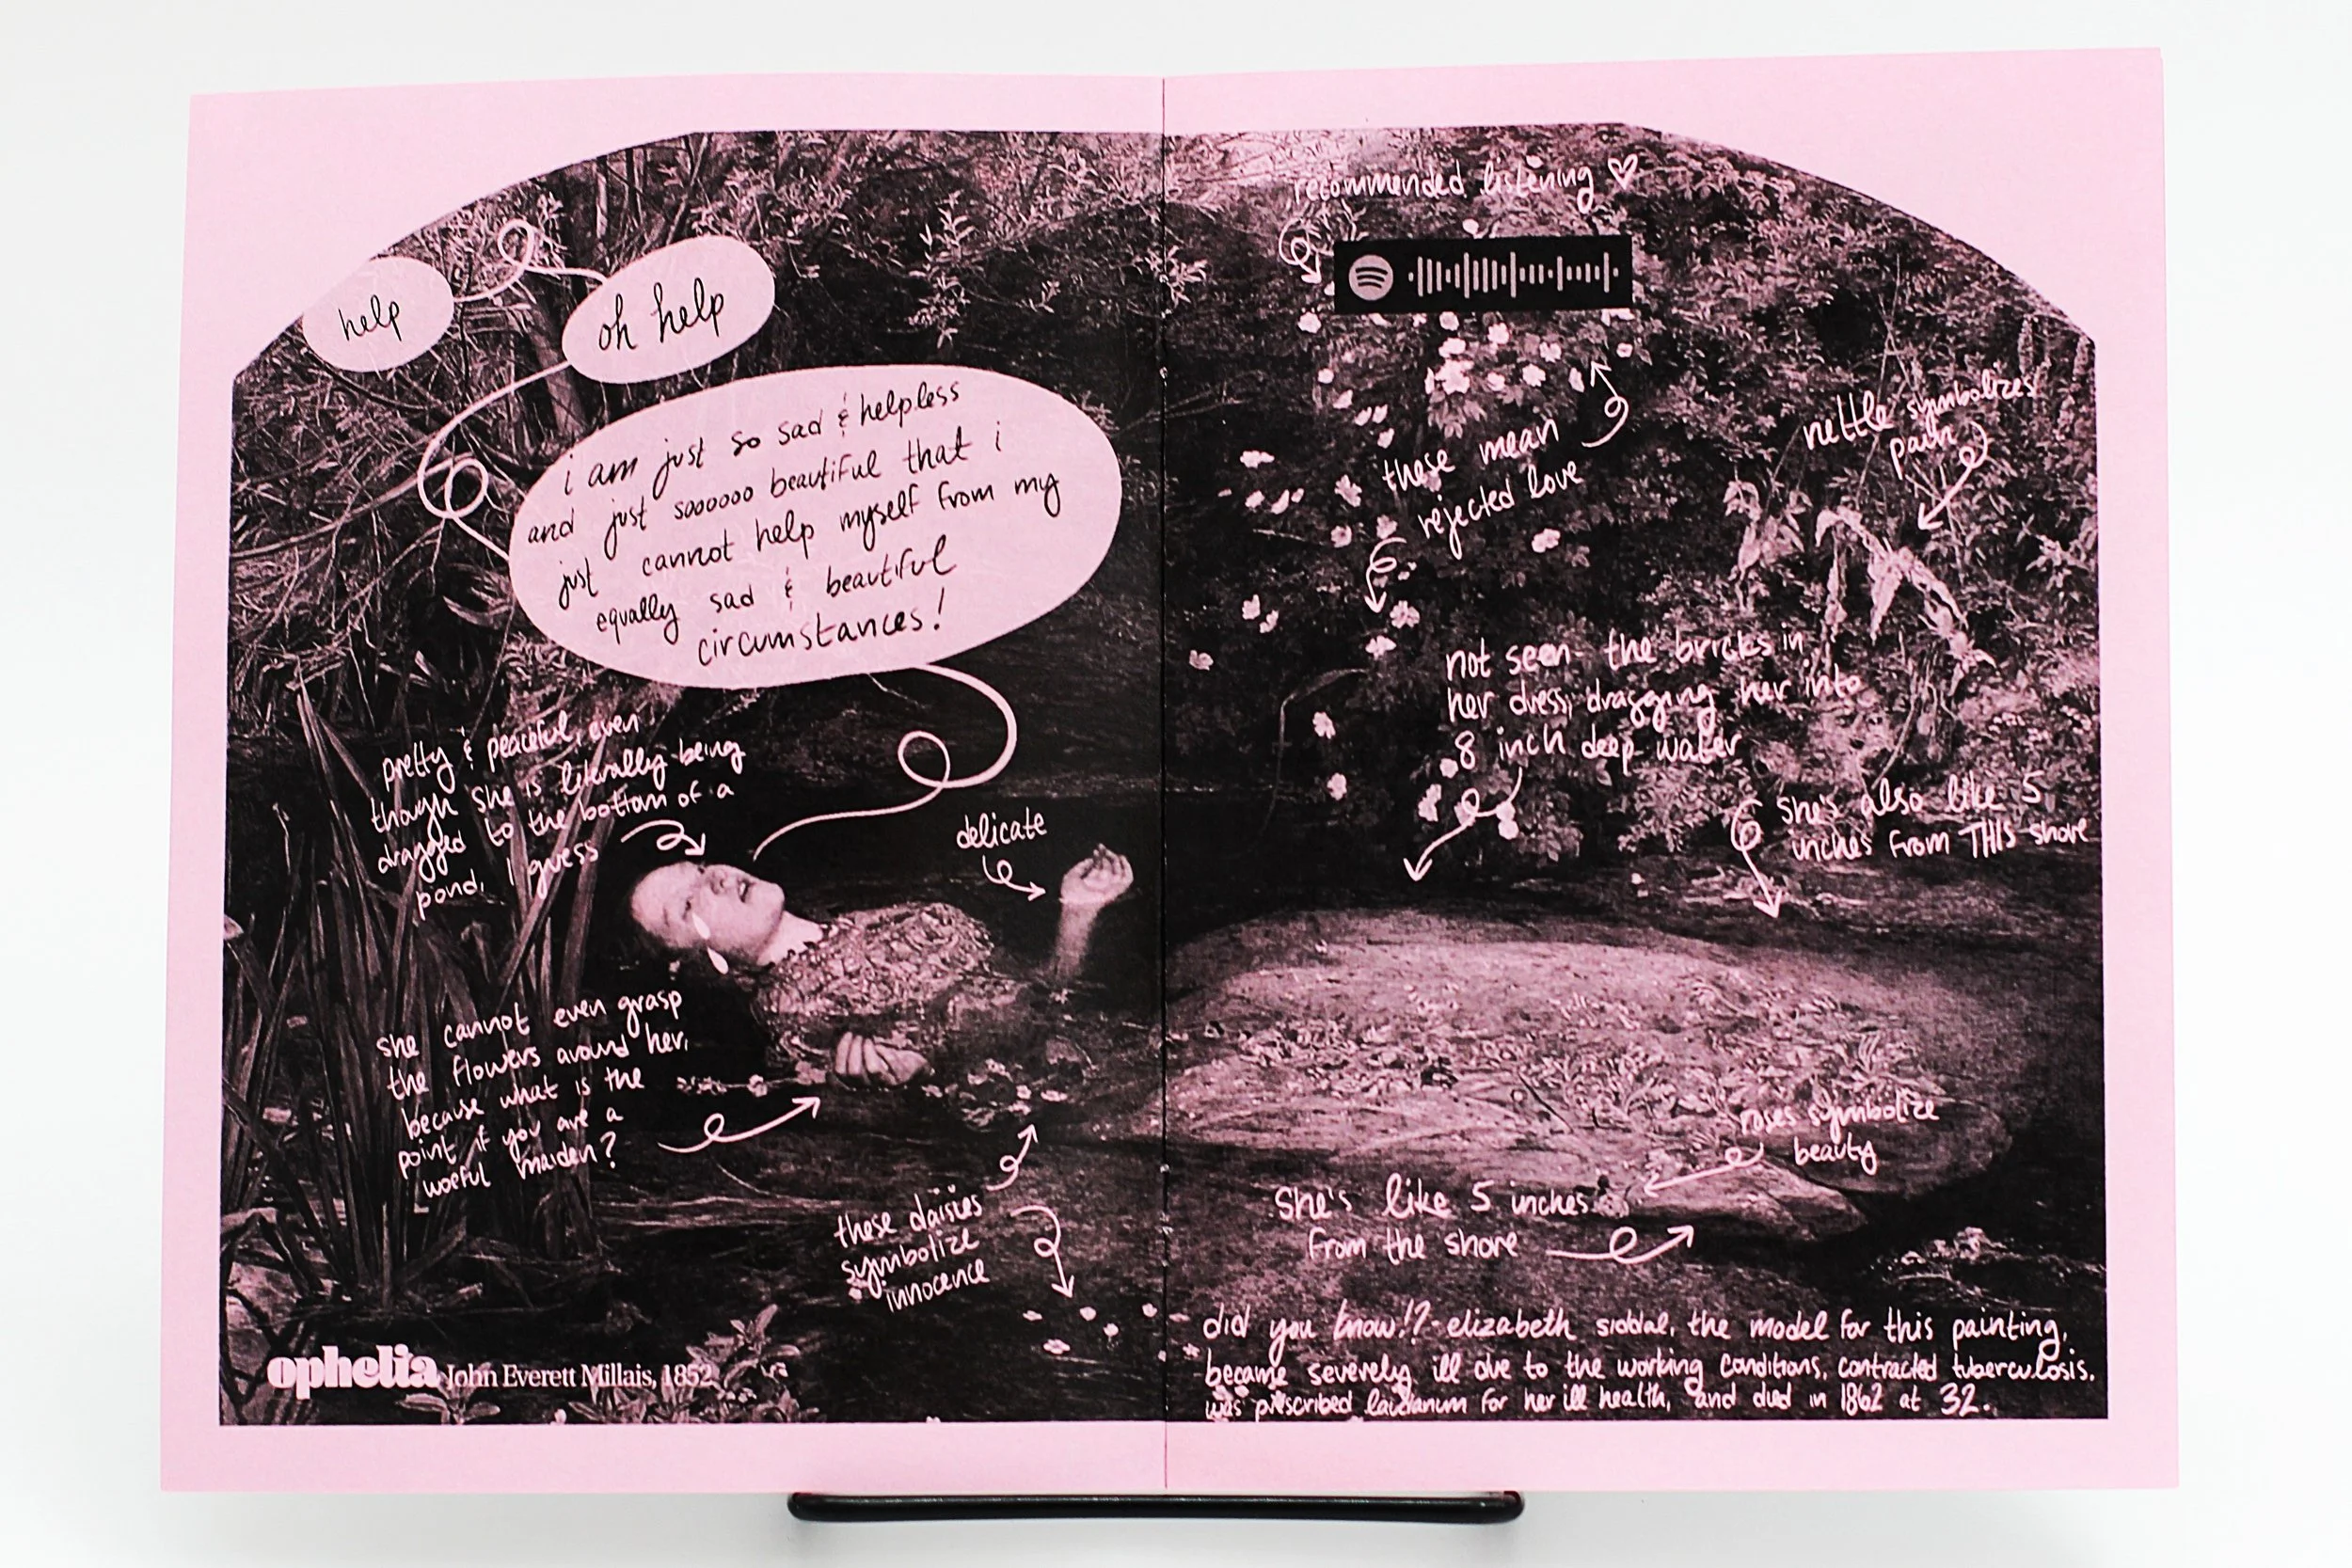 help
oh help
i am just so sad & helpless
and just soooooo beautiful that i
just cannot help myself from my
equally sad & beautiful
circumstances!
pretty & peaceful, even
though she is literally being
dragged to the bottom of a
pond, I guess
delicate
she cannot even grasp
the flowers around her,
because what is the
point if you are a
woeful maiden?
these daisies
symbolize
innocence
ophelia John Everett Millais, 1852
recommended listening
these mean
rejected love
nettle symbolizes
pain
not seen- the bricks in
her dress, dragging her into
8 inch deep water
she's also like 5
inches from THIS shore
roses symbolize
beauty
She's like 5 inches
from the shore
did you know!?- elizabeth siddal, the model for this painting,
became severely ill due to the working conditions, contracted tuberculosis,
was prescribed laudanum for her ill health, and died in 1862 at 32.